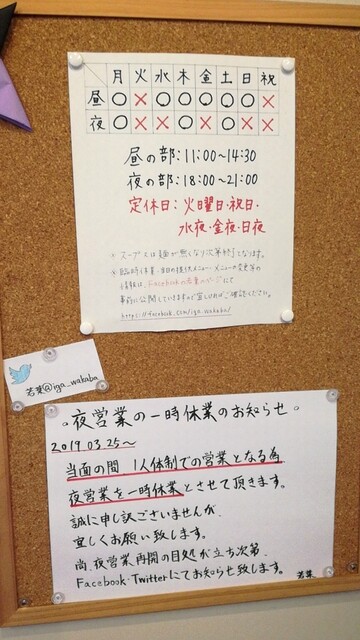 月 火 水 木 金 土 日 祝
昼 ○ × ○ ○ ○ ○ ○ ×
夜 ○ × × ○ × ○ × ×
昼の部:11:00~14:30
夜の部:18:00~21:00
定休日:火曜日・祝日・
水夜・金夜・日夜
* スープ又は麺が無くなり次第終了となります。
* 臨時休業・当日の提供メニュー・メニューの変更等の
情報は、Facebookの若葉のページにて
事前に公開していますので宜しければご確認ください。
https://facebook.com/iga.wakaba/
若葉@iga_wakaba
。夜営業の一時休業のお知らせ。
2019.03.25~
当面の間 1人体制での営業となる為
夜営業を一時休業とさせて頂きます。
誠に申し訳ございませんが、
宜しくお願い致します。
尚、夜営業再開の目処が立ち次第、
Facebook・Twitterにてお知らせ致します。 若葉